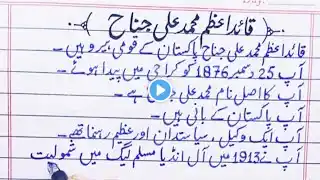 ﴿ قائداعظم محمد علی جناح ﴾
قائداعظم محمد علی جناح پاکستان کے قومی ہیرو ہیں ۔
آپ 25 دسمبر 1876 کو کراچی میں پیدا ہوئے ۔
آپ کا اصل نام محمد علی جناح ہے ۔
آپ پاکستان کے بانی ہیں ۔
آپ ایک وکیل ، سیاستدان اور عظیم رہنما تھے ۔
آپ نے 1913 میں آل انڈیا مسلم لیگ میں شمولیت